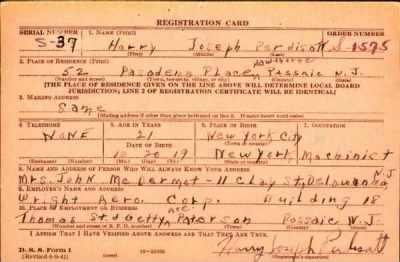 REGISTRATION CARD
SERIAL NUMBER 1. NAME (Print) ORDER NUMBER
S-37 Harry Joseph Perdisatt S-1575
2. PLACE OF RESIDENCE (Print) Hawthorne
52 Pasadena Place, Passaic N.J.
(Number and street) (Town, township, village, or city) (County) (State)
[THE PLACE OF RESIDENCE GIVEN ON THE LINE ABOVE WILL DETERMINE LOCAL BOARD
JURISDICTION; LINE 2 OF REGISTRATION CERTIFICATE WILL BE IDENTICAL]
3. MAILING ADDRESS
Same
[Mailing address if other than place indicated on line 2. If same insert word same]
4. TELEPHONE 5. AGE IN YEARS 6. PLACE OF BIRTH 7. OCCUPATION
NONE 21 New York City
DATE OF BIRTH
10 20 19 New York Machinist
(Exchange) (Number) (Mo.) (Day) (Yr.) (State or country)
8. NAME AND ADDRESS OF PERSON WHO WILL ALWAYS KNOW YOUR ADDRESS N.J.
Mrs. John McDermot - 11 Clay St, Delawanna
9. EMPLOYER'S NAME AND ADDRESS
Wright Aero. Corp. Building 18
10. PLACE OF EMPLOYMENT OR BUSINESS Ave
Thomas St. & Getty Paterson Passaic N.J.
(Number and street or R. F. D. number) (Town) (County) (State)
I AFFIRM THAT I HAVE VERIFIED ABOVE ANSWERS AND THAT THEY ARE TRUE.
D. S. S. Form 1
(Revised 6-9-41) Harry Joseph